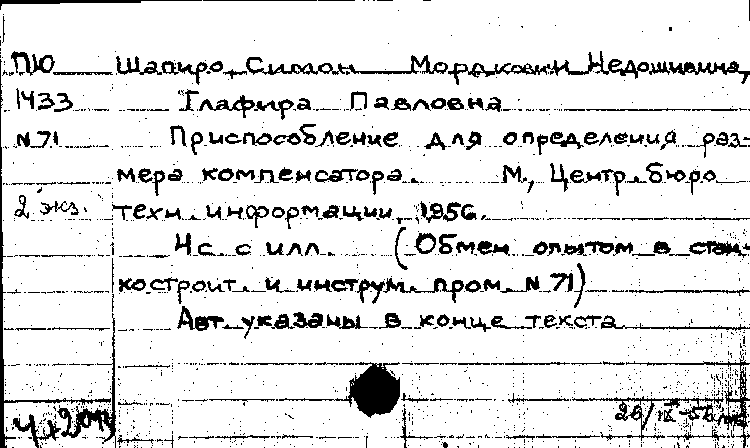 ПЮ Шапиро, Симон Мордкович Недошивина,
1433 Глафира Павловна
N 71 Приспособление для определения раз-
мера компенсатора. М., Центр. бюро
2 экз. техн. информации, 1956.
4 с. с илл. (Обмен опытом в стан-
костроит. и инструм. пром. N 71)
Авт. указаны в конце текста
26/IX-56